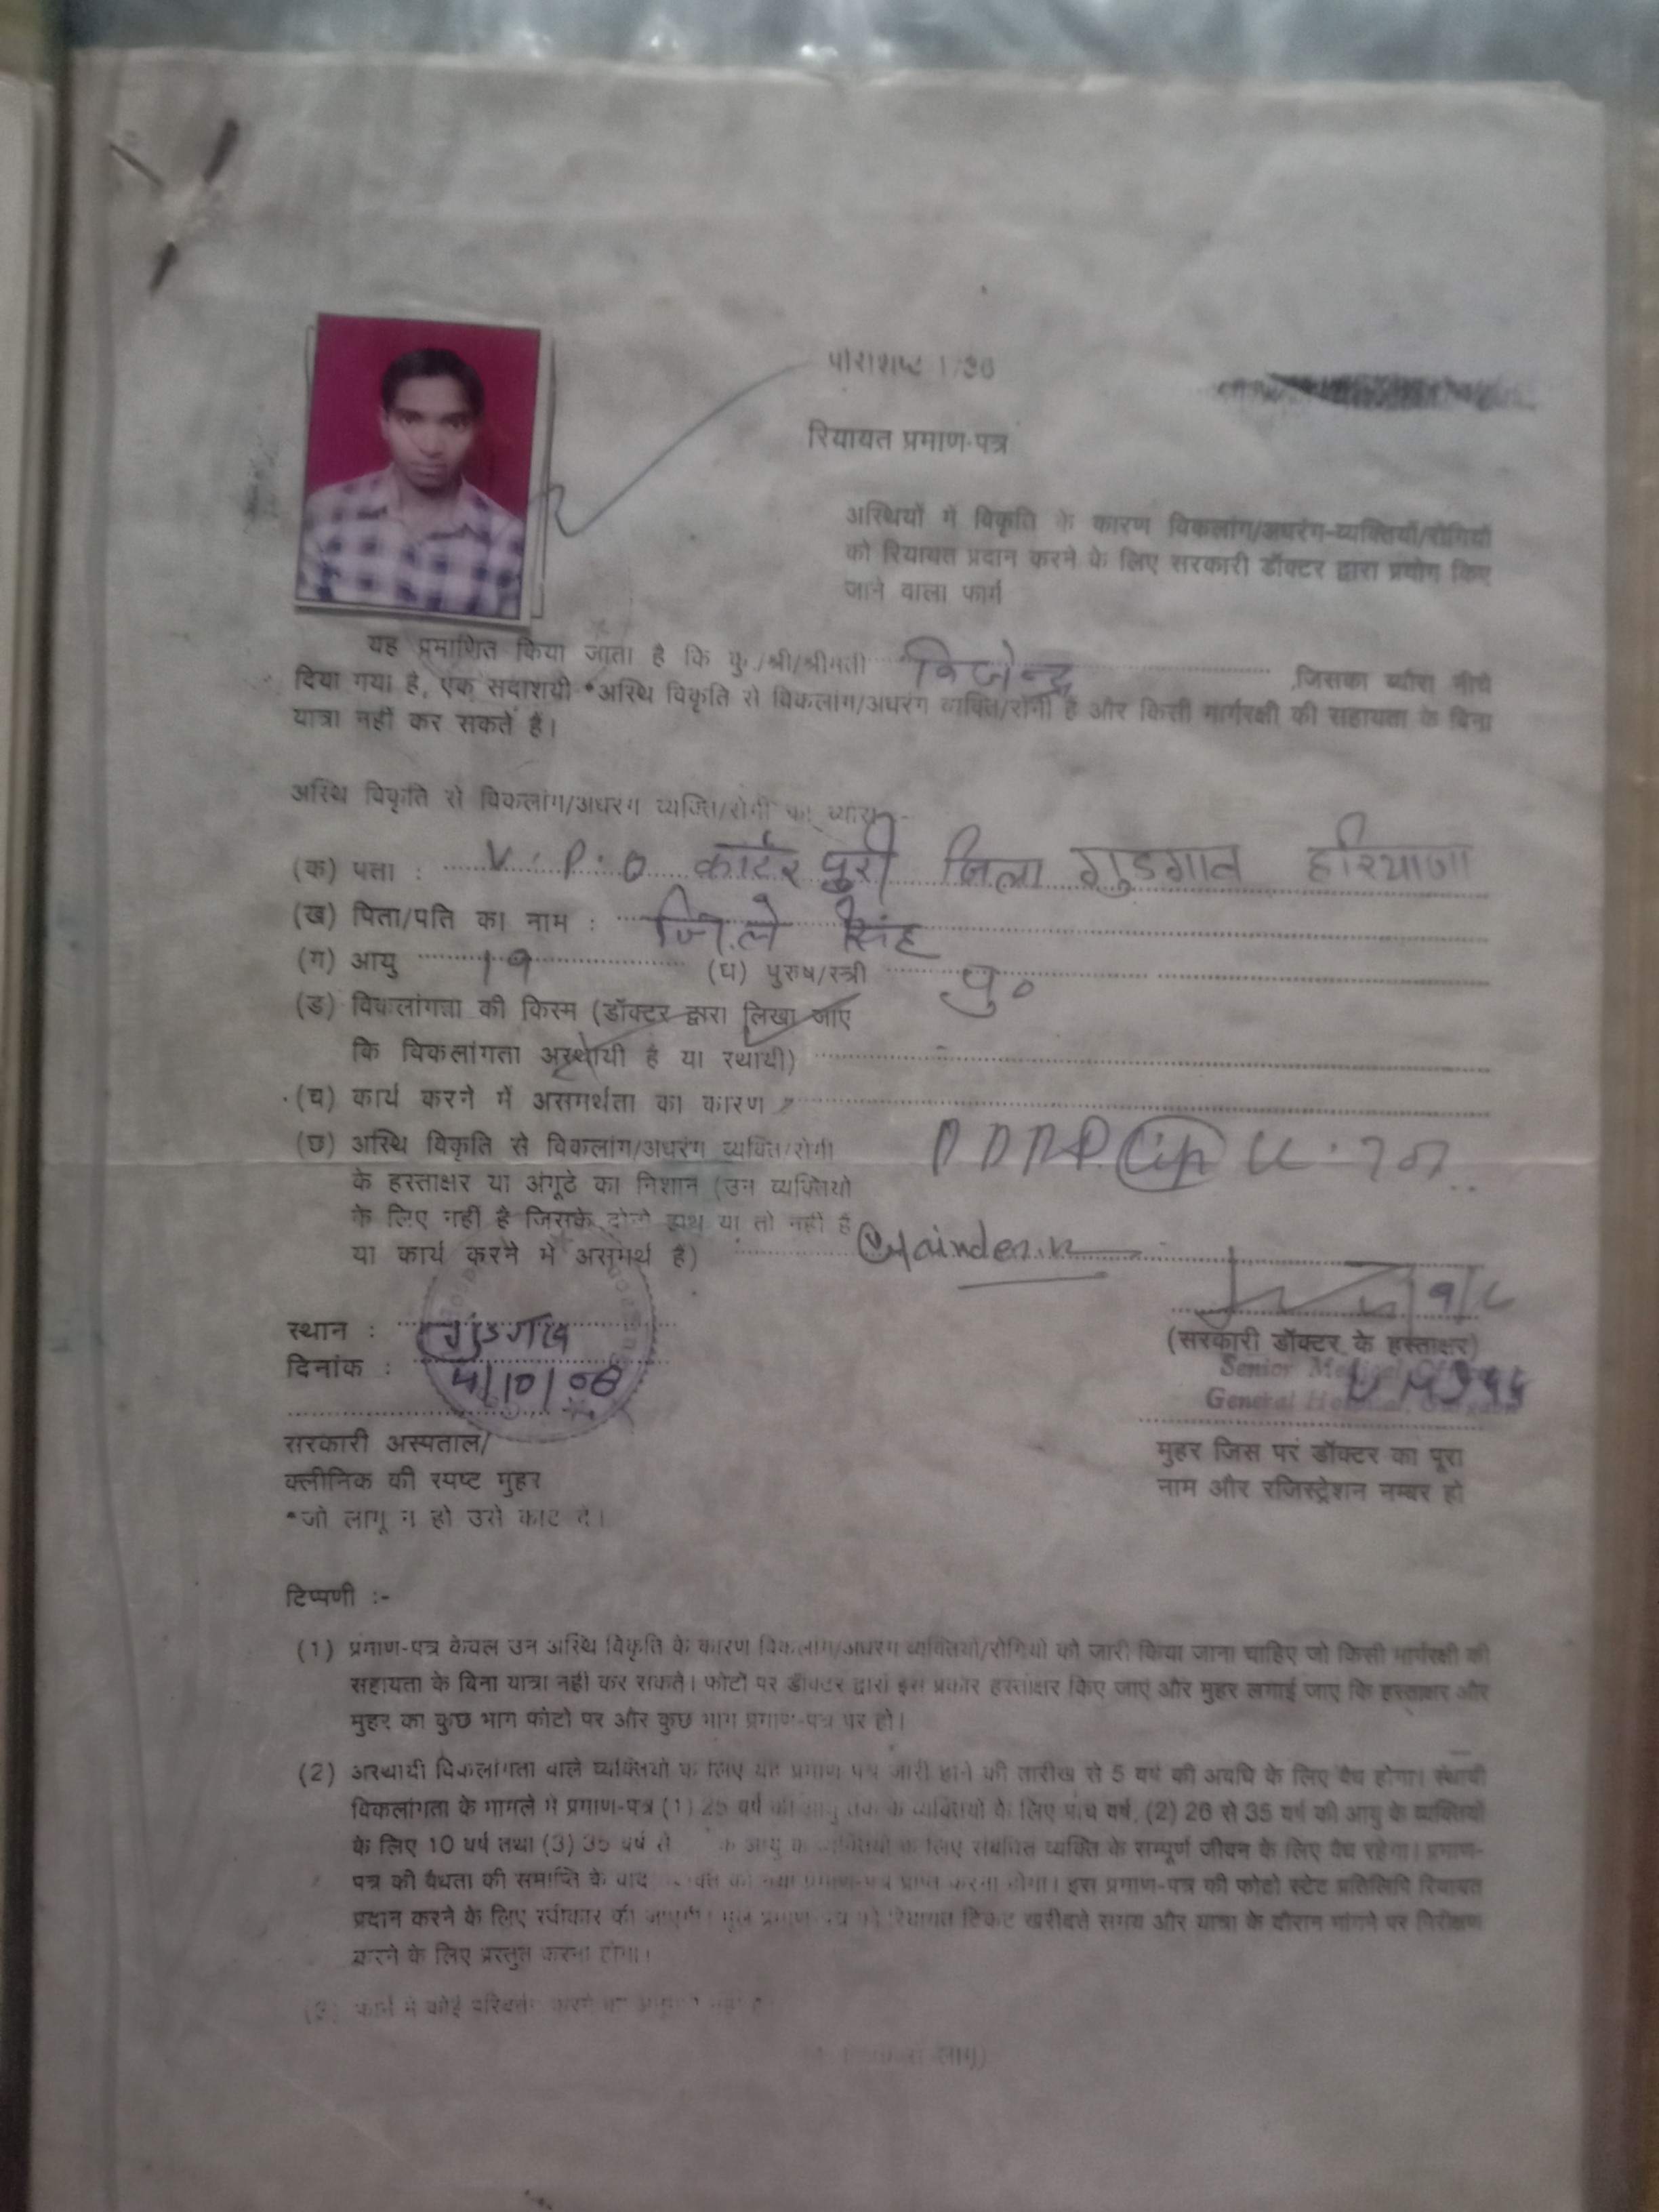 परिशिष्ट 1/36
रियायत प्रमाण-पत्र
अस्थियों में विकृति के कारण विकलांग/अधरंग-व्यक्तियों/रोगियों
को रियायत प्रदान करने के लिए सरकारी डॉक्टर द्वारा प्रयोग किए
जाने वाला फार्म
यह प्रमाणित किया जाता है कि कु./श्री/श्रीमती विजेन्द्र ,जिसका ब्यौरा नीचे
दिया गया है, एक सदाशयी *अस्थि विकृति से विकलांग/अधरंग व्यक्ति/रोगी है और किसी मार्गरक्षी की सहायता के बिना
यात्रा नहीं कर सकते हैं।
अस्थि विकृति से विकलांग/अधरंग व्यक्ति/रोगी का ब्योरा :-
(क) पता : V.P.O कार्टर पुरी जिला गुडगाव हरियाणा
(ख) पिता/पति का नाम : जिले सिंह
(ग) आयु 19 (घ) पुरुष/स्त्री पु०
(ड) विकलांगता की किस्म (डॉक्टर द्वारा लिखा जाए
कि विकलांगता अस्थायी है या स्थायी)
(च) कार्य करने में असमर्थता का कारण
(छ) अस्थि विकृति से विकलांग/अधरंग व्यक्ति/रोगी
के हस्ताक्षर या अंगूठे का निशान (उन व्यक्तियों
के लिए नहीं है जिसके दोनों हाथ या तो नहीं हैं
या कार्य करने में असमर्थ हैं)
स्थान : गुडगांव
(सरकारी डॉक्टर के हस्ताक्षर)
दिनांक : 4/10/08
Senior Medical
General Hospital, Gurgaon
सरकारी अस्पताल/
क्लीनिक की स्पष्ट मुहर
मुहर जिस पर डॉक्टर का पूरा
नाम और रजिस्ट्रेशन नम्बर हो
*जो लागू न हो उसे काट दें।
टिप्पणी :-
(1) प्रमाण-पत्र केवल उन अस्थि विकृति के कारण विकलांग/अधरंग व्यक्तियों/रोगियों को जारी किया जाना चाहिए जो किसी मार्गरक्षी की
सहायता के बिना यात्रा नहीं कर सकते। फोटो पर डॉक्टर द्वारा इस प्रकार हस्ताक्षर किए जाएं और मुहर लगाई जाए कि हस्ताक्षर और
मुहर का कुछ भाग फोटो पर और कुछ भाग प्रमाण-पत्र पर हो।
(2) अस्थायी विकलांगता वाले व्यक्तियों के लिए यह प्रमाण पत्र जारी होने की तारीख से 5 वर्ष की अवधि के लिए वैध होगा। स्थायी
विकलांगता के मामले में प्रमाण-पत्र (1) 25 वर्ष की आयु तक के व्यक्तियों के लिए पांच वर्ष, (2) 26 से 35 वर्ष की आयु के व्यक्तियों
के लिए 10 वर्ष तथा (3) 35 वर्ष से के आयु के व्यक्तियों के लिए संबंधित व्यक्ति के सम्पूर्ण जीवन के लिए वैध रहेगा। प्रमाण-
पत्र की वैधता की समाप्ति के बाद को नया प्रमाण-पत्र प्राप्त करना होगा। इस प्रमाण-पत्र की फोटो स्टेट प्रतिलिपि रियायत
प्रदान करने के लिए स्वीकार की जाएगी। मूल प्रमाण-पत्र को रियायत टिकट खरीदते समय और यात्रा के दौरान मांगने पर निरीक्षण
करने के लिए प्रस्तुत करना होगा।
(3) फार्म में कोई परिवर्तन करने
लागू)